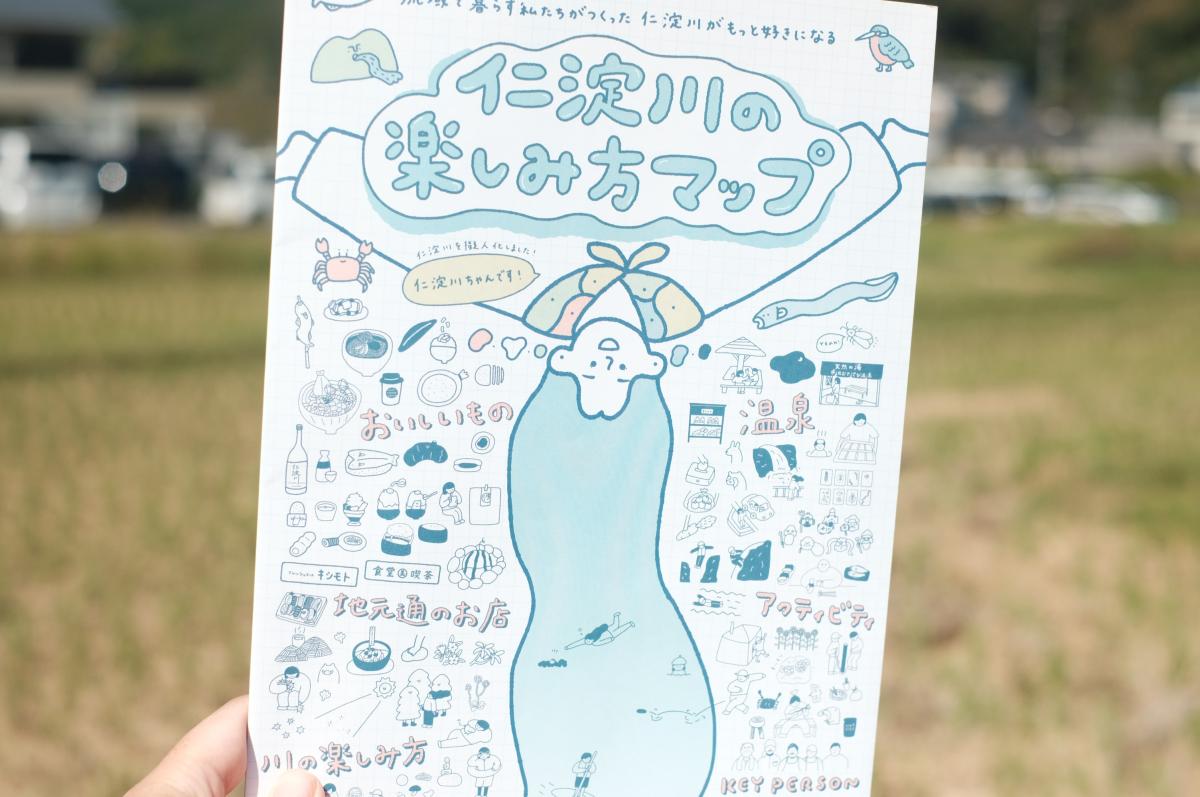 流域で暮らす私たちがつくった 仁淀川がもっと好きになる
仁淀川の
楽しみ方マップ
仁淀川を擬人化しました!
仁淀川ちゃんです!
YEAH!
おいしいもの
温泉
キシモト
食堂 喫茶
地元通のお店
アクティビティ
川の楽しみ方
KEY PERSON